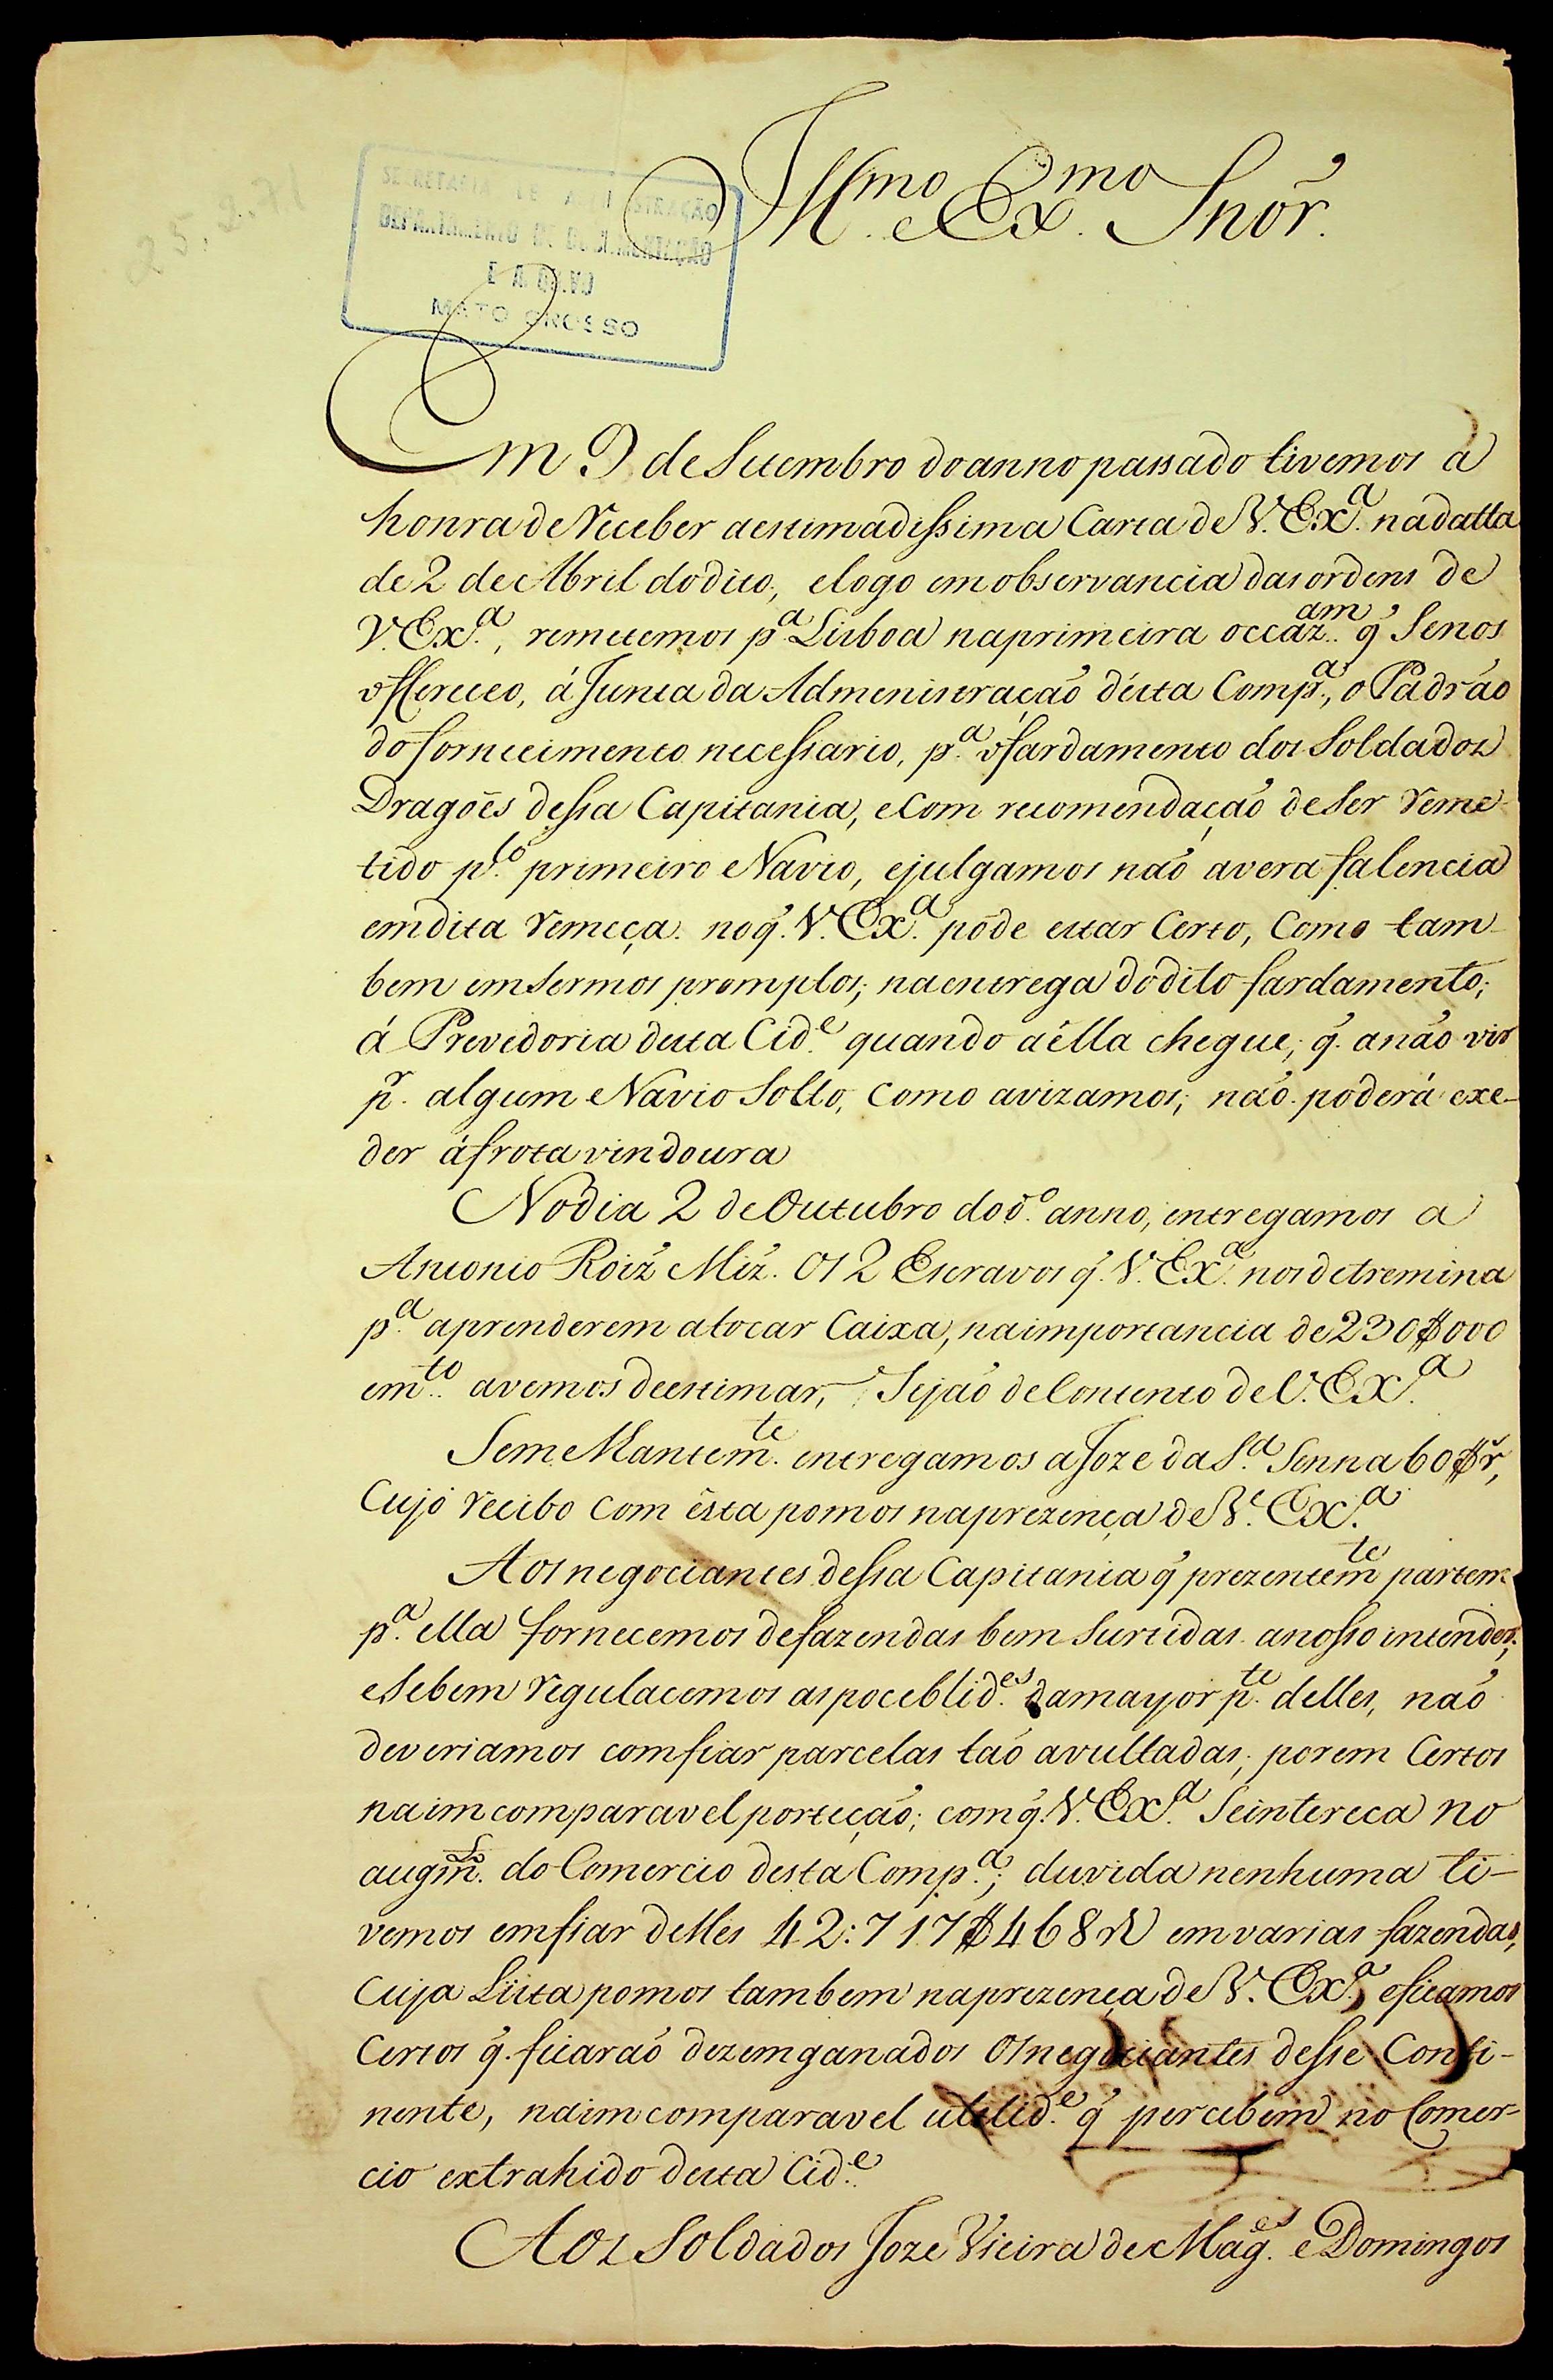 25.2.71
SECRETARIA DE ADMINISTRAÇÃO
DEPARTAMENTO DE DOCUMENTAÇÃO
E ARQUIVO
MATO GROSSO
Ill.mo e Ex.mo Snõr.
Em 9 de Setembro do anno passado tivemos a
honra de receber a estimadissima Carta de V. Ex.a na datta
de 2 de Abril do dito, e logo em observancia das ordens de
V. Ex.a, remetemos p.a Lisboa na primeira occaz.am q' se nos
offereceo, á Junta da Admenistração désta Comp.a, o Padrão
do fornecimento necessario, p.a o fardamento dos Soldados
Dragoẽs dessa Capitania, e Com recomendação de ser reme-
tido p.lo primeiro Navio, e julgamos não avera falencia
em dita remeça. no q'. V. Ex.a póde estar Certo, Como tam-
bem em sermos promptos; na entrega do dito fardamento;
á Provedoria desta Cid.e quando a élla chegue; q'. a não vir
p.r algum Navio Solto, Como avizamos; não poderá exe-
der á frota vindoura
No dia 2 de Outubro do d.o anno, entregamos a
Antonio Roiz' Miz'. os 2 Escravos q'. V. Ex.a nos detremina
p.a aprenderem a tocar Caixa, na importancia de 230$000
em.to avemos de estimar, Sejão de Contento de V. Ex.a
Semelhantem.te entregamos a Joze da S.a Senna 60$r.,
Cujo recibo Com ésta pomos na prezença de V. Ex.a
Aos negociantes dessa Capitania q' prezentem.te partem
p.a ella fornecemos de fazendas bem Surtidas a nosso intender;
e Se bem regulacemos as poceblid.es da mayor p.te delles, não
deveriamos comfiar parcelas tão avultadas; porem Certos
na imcomparavel porteção; com q'. V. Ex.a Se intereca no
augm.to do Comercio desta Comp.a; duvida nenhuma ti-
vemos em fiar delles 42:717$468 rs em varias fazendas,
Cuja Lista pomos tambem na prezença de V. Ex.a, e ficamos
Certos q'. ficarão dezemganados os negociantes desse Conti-
nente, na imcomparavel utelid.e q' percebem no Comer-
cio extrahido desta Cid.e
Aos Soldados Joze Vieira de Mag.es e Domingos